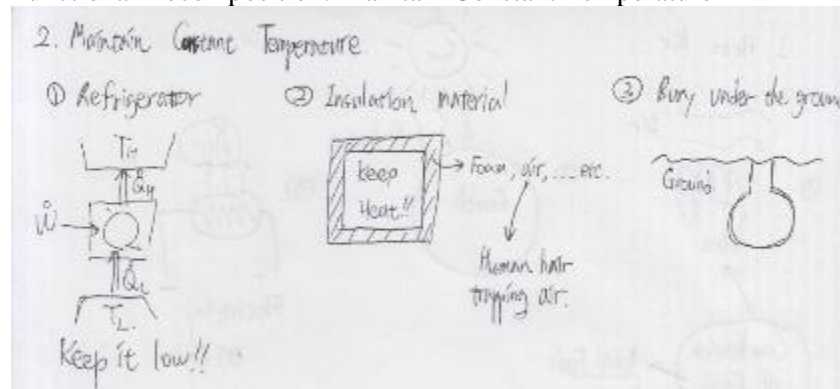 2. Maintain Constant Temperature
① Refrigerator
T_H
Q̇_H
Ẇ
Q̇_L
T_L
Keep it low!!
② Insulation material
keep
Heat!!
Foam, air, ... etc.
Human hair
trapping air.
③ Bury under the ground
Ground